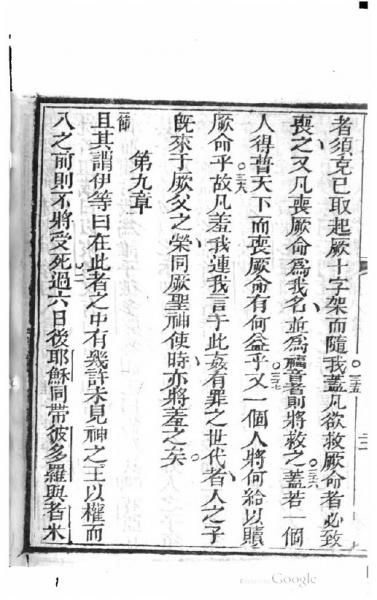 者須克己取起厥十字架而隨我蓋凡欲救厥命者必致
喪之又凡喪厥命爲我名並爲福音者則將救之蓋若一個
人得普天下而喪厥命有何益乎又一個人將何給以贖
厥命乎故凡羞我連我言于此姦有罪之世代者人之子
旣來于厥父之榮同厥聖神使時亦將羞之矣
第九章
節
且其謂伊等曰在此者之中有幾許未見神之王以權而
八之前則不將受死過六日後耶穌同帶彼多羅與者米
Google
1